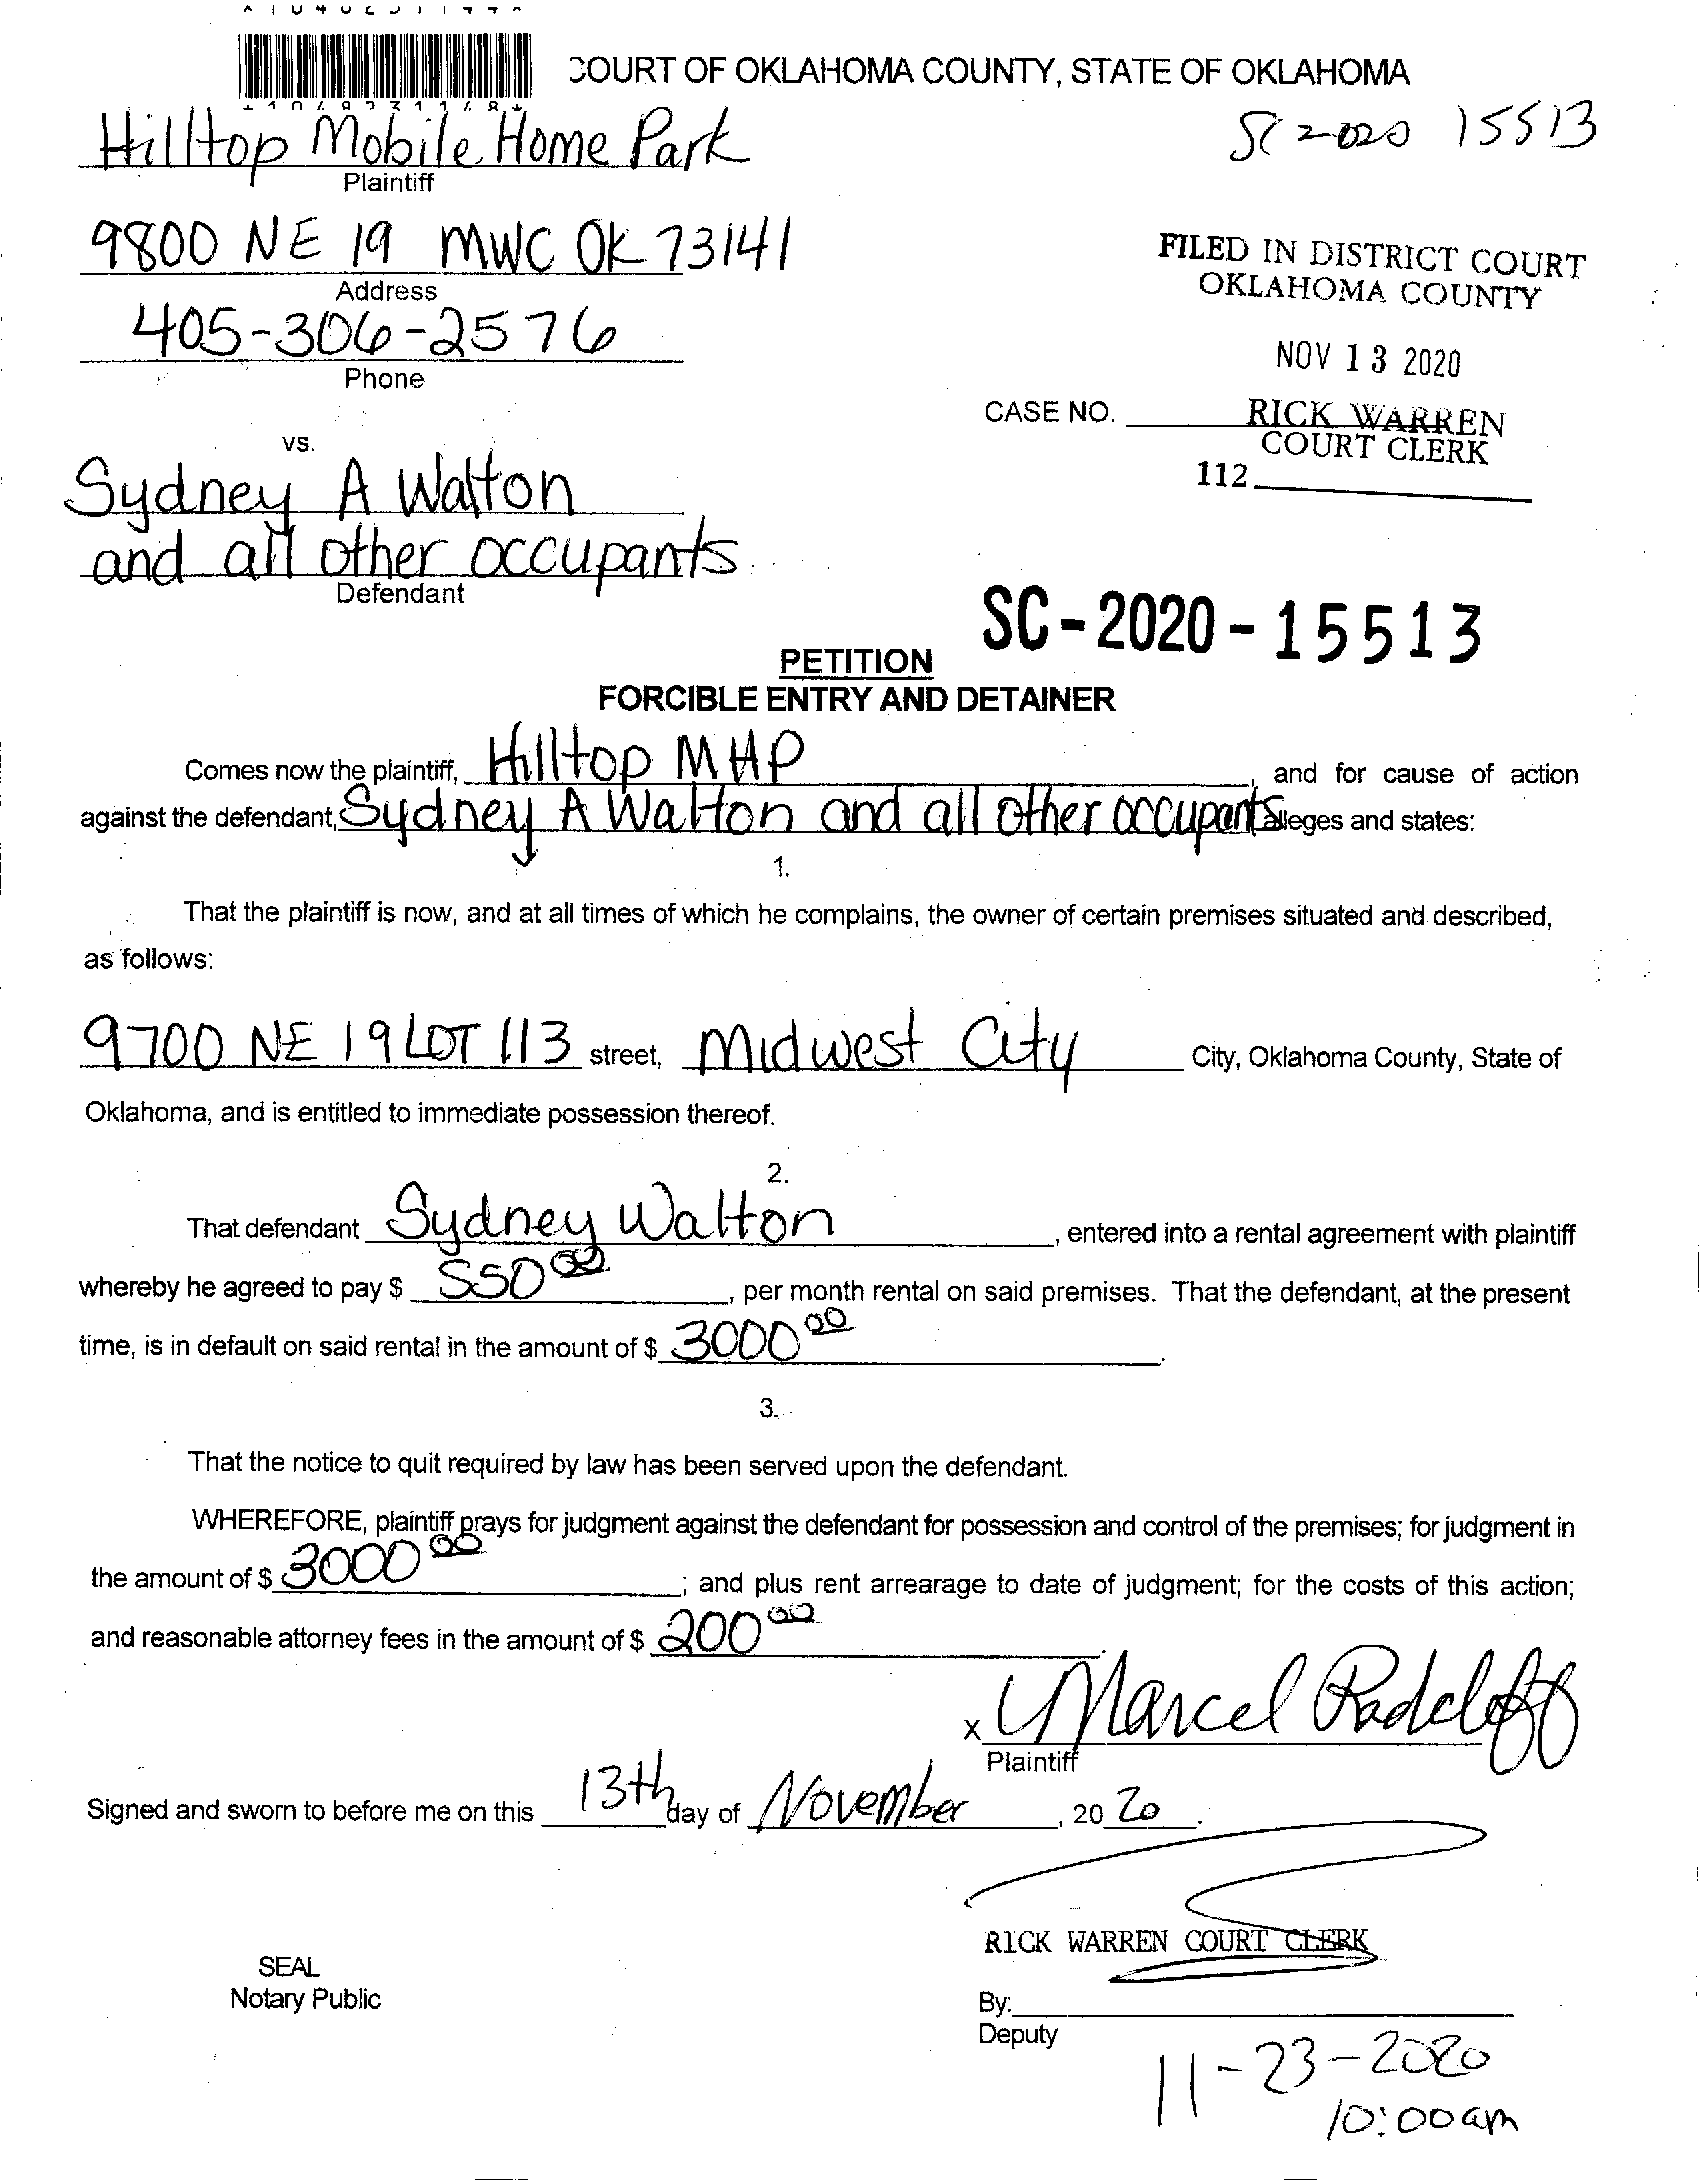 COURT OF OKLAHOMA COUNTY, STATE OF OKLAHOMA
Hilltop Mobile Home Park
SC 2020 15513
Plaintiff
9800 NE 19 MWC OK 73141
FILED IN DISTRICT COURT
OKLAHOMA COUNTY
Address
405-306-2576
NOV 13 2020
Phone
CASE NO. RICK WARREN
COURT CLERK
vs.
112
Sydney A Walton
and all other occupants
Defendant
SC-2020-15513
PETITION
FORCIBLE ENTRY AND DETAINER
Comes now the plaintiff, Hilltop MHP, and for cause of action
against the defendant, Sydney A Walton and all other occupants alleges and states:
1.
That the plaintiff is now, and at all times of which he complains, the owner of certain premises situated and described,
as follows:
9700 NE 19 LOT 113 street, Midwest City City, Oklahoma County, State of
Oklahoma, and is entitled to immediate possession thereof.
2.
That defendant Sydney Walton, entered into a rental agreement with plaintiff
whereby he agreed to pay $ 550 00, per month rental on said premises. That the defendant, at the present
time, is in default on said rental in the amount of $ 3000 00.
3.
That the notice to quit required by law has been served upon the defendant.
WHEREFORE, plaintiff prays for judgment against the defendant for possession and control of the premises; for judgment in
the amount of $ 3000 00; and plus rent arrearage to date of judgment; for the costs of this action;
and reasonable attorney fees in the amount of $ 200 00.
x Marcel Radeloff
Plaintiff
Signed and sworn to before me on this 13th day of November, 20 20.
RICK WARREN COURT CLERK
SEAL
Notary Public
By:
Deputy
11-23-2020
10:00am